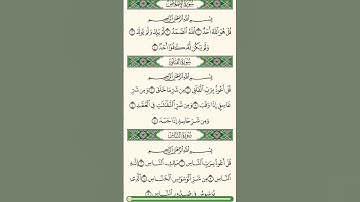 سُورَةُ الإِخْلَاصِ
بِسْمِ اللَّهِ الرَّحْمَٰنِ الرَّحِيمِ
قُلْ هُوَ اللَّهُ أَحَدٌ ۝ اللَّهُ الصَّمَدُ ۝ لَمْ يَلِدْ وَلَمْ يُولَدْ ۝
وَلَمْ يَكُن لَّهُ كُفُوًا أَحَدٌ ۝
سُورَةُ الْفَلَقِ
بِسْمِ اللَّهِ الرَّحْمَٰنِ الرَّحِيمِ
قُلْ أَعُوذُ بِرَبِّ الْفَلَقِ ۝ مِن شَرِّ مَا خَلَقَ ۝ وَمِن شَرِّ
غَاسِقٍ إِذَا وَقَبَ ۝ وَمِن شَرِّ النَّفَّاثَاتِ فِي الْعُقَدِ ۝
وَمِن شَرِّ حَاسِدٍ إِذَا حَسَدَ ۝
سُورَةُ النَّاسِ
بِسْمِ اللَّهِ الرَّحْمَٰنِ الرَّحِيمِ
قُلْ أَعُوذُ بِرَبِّ النَّاسِ ۝ مَلِكِ النَّاسِ ۝ إِلَٰهِ
النَّاسِ ۝ مِن شَرِّ الْوَسْوَاسِ الْخَنَّاسِ ۝ الَّذِي
يُوَسْوِسُ فِي صُدُورِ النَّاسِ ۝